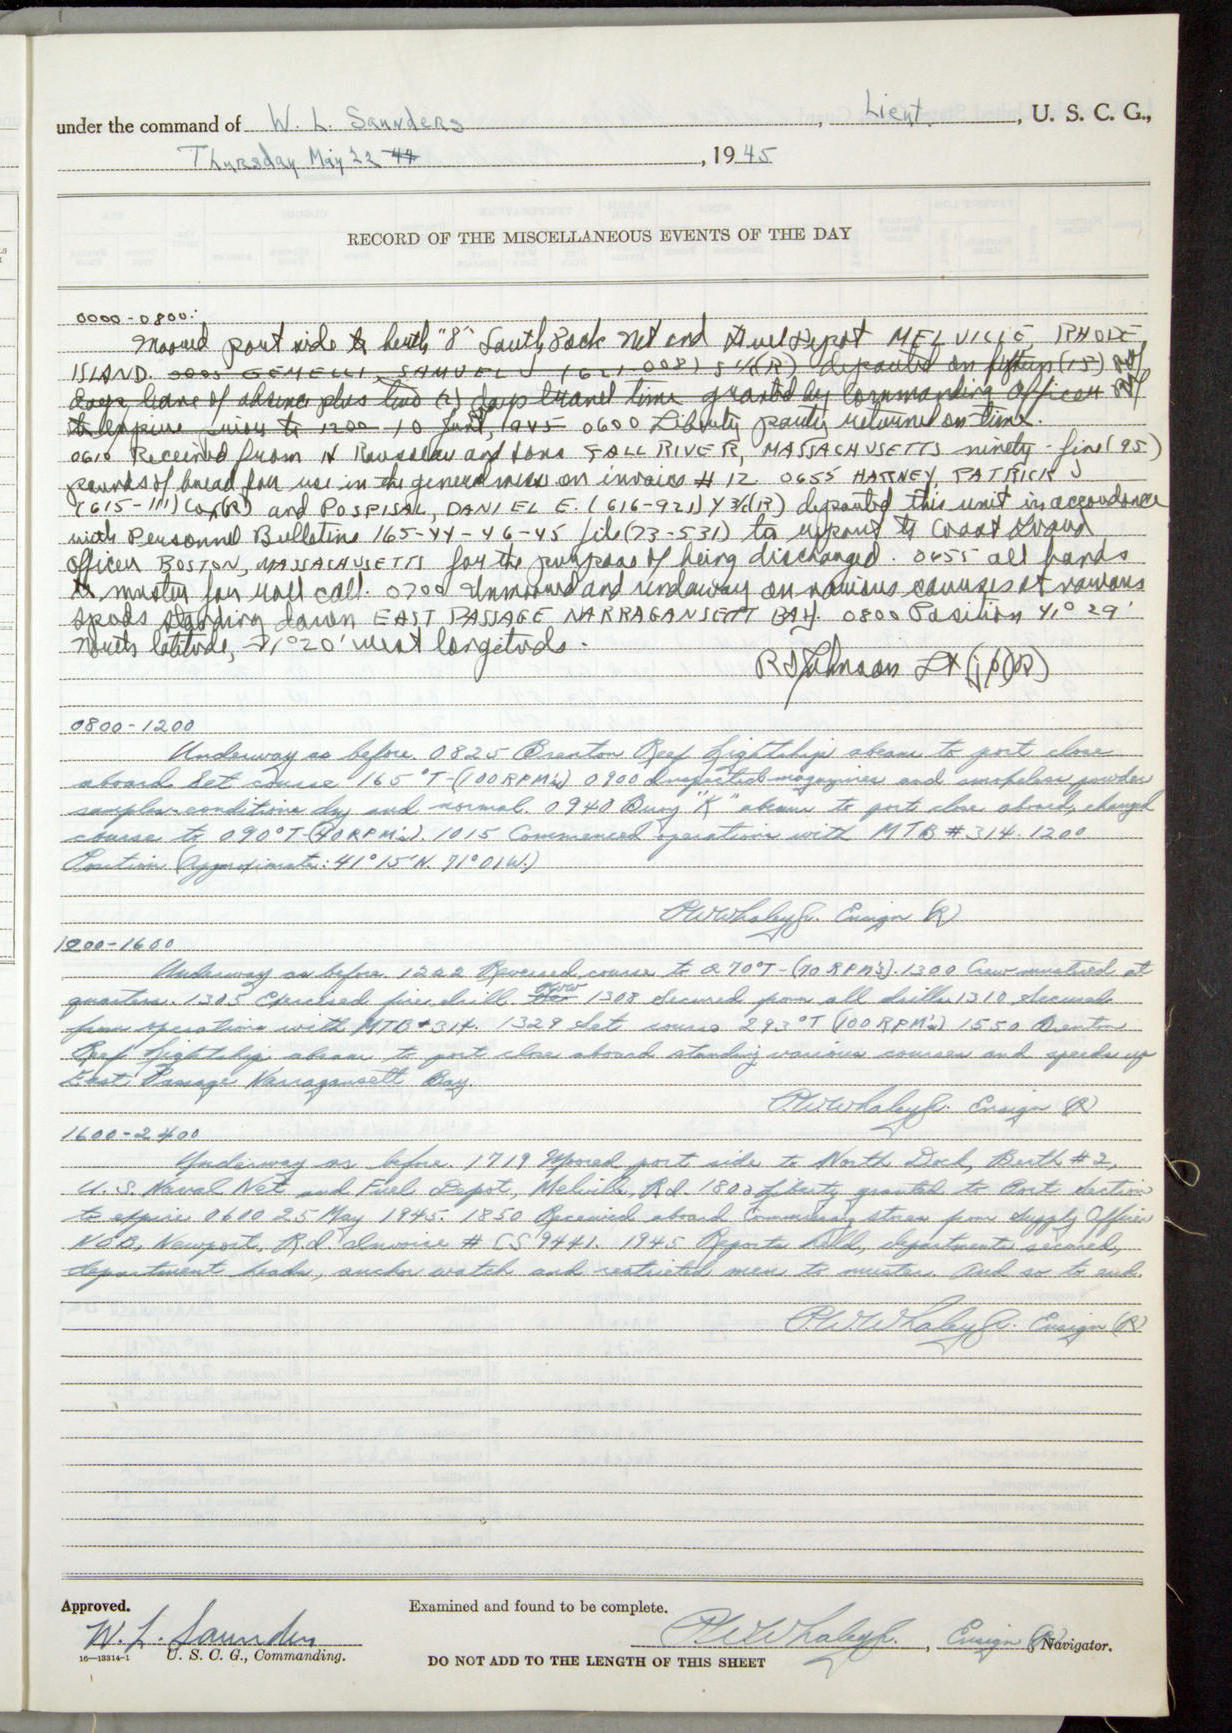 under the command of W. L. Saunders, Lieut., U. S. C. G.,
Thursday May 22 44, 1945
RECORD OF THE MISCELLANEOUS EVENTS OF THE DAY
0000-0800:
Moored port side to berth "8" South Dock Net and Fuel Depot MELVILLE, RHODE
ISLAND. 0005 GEMELLI, SAMUEL J (621 008) S 1/c(R) departed on fifteen (15)
days leave of absence plus two (2) days travel time granted by Commanding Officer
to expire prior to 1200 10 June, 1945 0600 Liberty party returned on time.
0610 Received from N Rousseau and Sons FALL RIVER, MASSACHUSETTS ninety-five (95)
pounds of bread for use in the general mess on invoice # 12 0655 HARNEY, PATRICK J
(615-111) Cox(R) and POSPISAL, DANIEL E. (616-921) Y 3/c(R) departed this unit in accordance
with Personnel Bulletins 165-44-46-45 file (73-531) to report to Coast Guard
Officer BOSTON, MASSACHUSETTS for the purpose of being discharged. 0655 all hands
to muster for roll call. 0700 Unmoored and underway on various courses at various
speeds standing down EAST PASSAGE NARRAGANSETT BAY. 0800 Position 41° 29'
North latitude, 71° 20' west longitude.
R Johnson Lt (jg)(R)
0800-1200
Underway as before. 0825 Brenton Reef Lightship abeam to port close
aboard Set course 165°T-(100 RPM's) 0900 Inspected magazines and smokeless powder
samples-conditions dry and normal. 0940 Buoy "K" abeam to port close aboard, changed
course to 090°T-(70 RPM's). 1015 Commenced operations with MTB #314. 1200
Position (Approximate: 41°15'N. 71°01'W.)
P.W. Whaley Jr. Ensign (R)
1200-1600
Underway as before. 1222 Reversed course to 270°T-(70 RPM's). 1300 Crew mustered at
quarters. 1305 Exercised fire drill. 1308 Secured from all drills 1310 Secured
from operations with MTB #314. 1329 Set course 293°T (100 RPM's) 1550 Brenton
Reef Lightship abeam to port close aboard standing various courses and speeds up
East Passage Narragansett Bay.
P.W. Whaley Jr. Ensign (R)
1600-2400
Underway as before. 1719 Moored port side to North Dock, Berth #2,
U.S. Naval Net and Fuel Depot, Melville, R.I. 1800 Liberty granted to Port section
to expire 0600 25 May 1945. 1850 Received aboard Commissary stores from Supply Officer
N.O.B., Newport, R.I. Invoice # CS 9441. 1945 Reports held, departments secured,
department heads, anchor watch and restricted men to muster. And so to end.
P.W. Whaley Jr. Ensign (R)
Approved.
Examined and found to be complete.
W. L. Saunders
P.W. Whaley Jr., Ensign (R), Navigator.
16—13314-1 U. S. C. G., Commanding.
DO NOT ADD TO THE LENGTH OF THIS SHEET